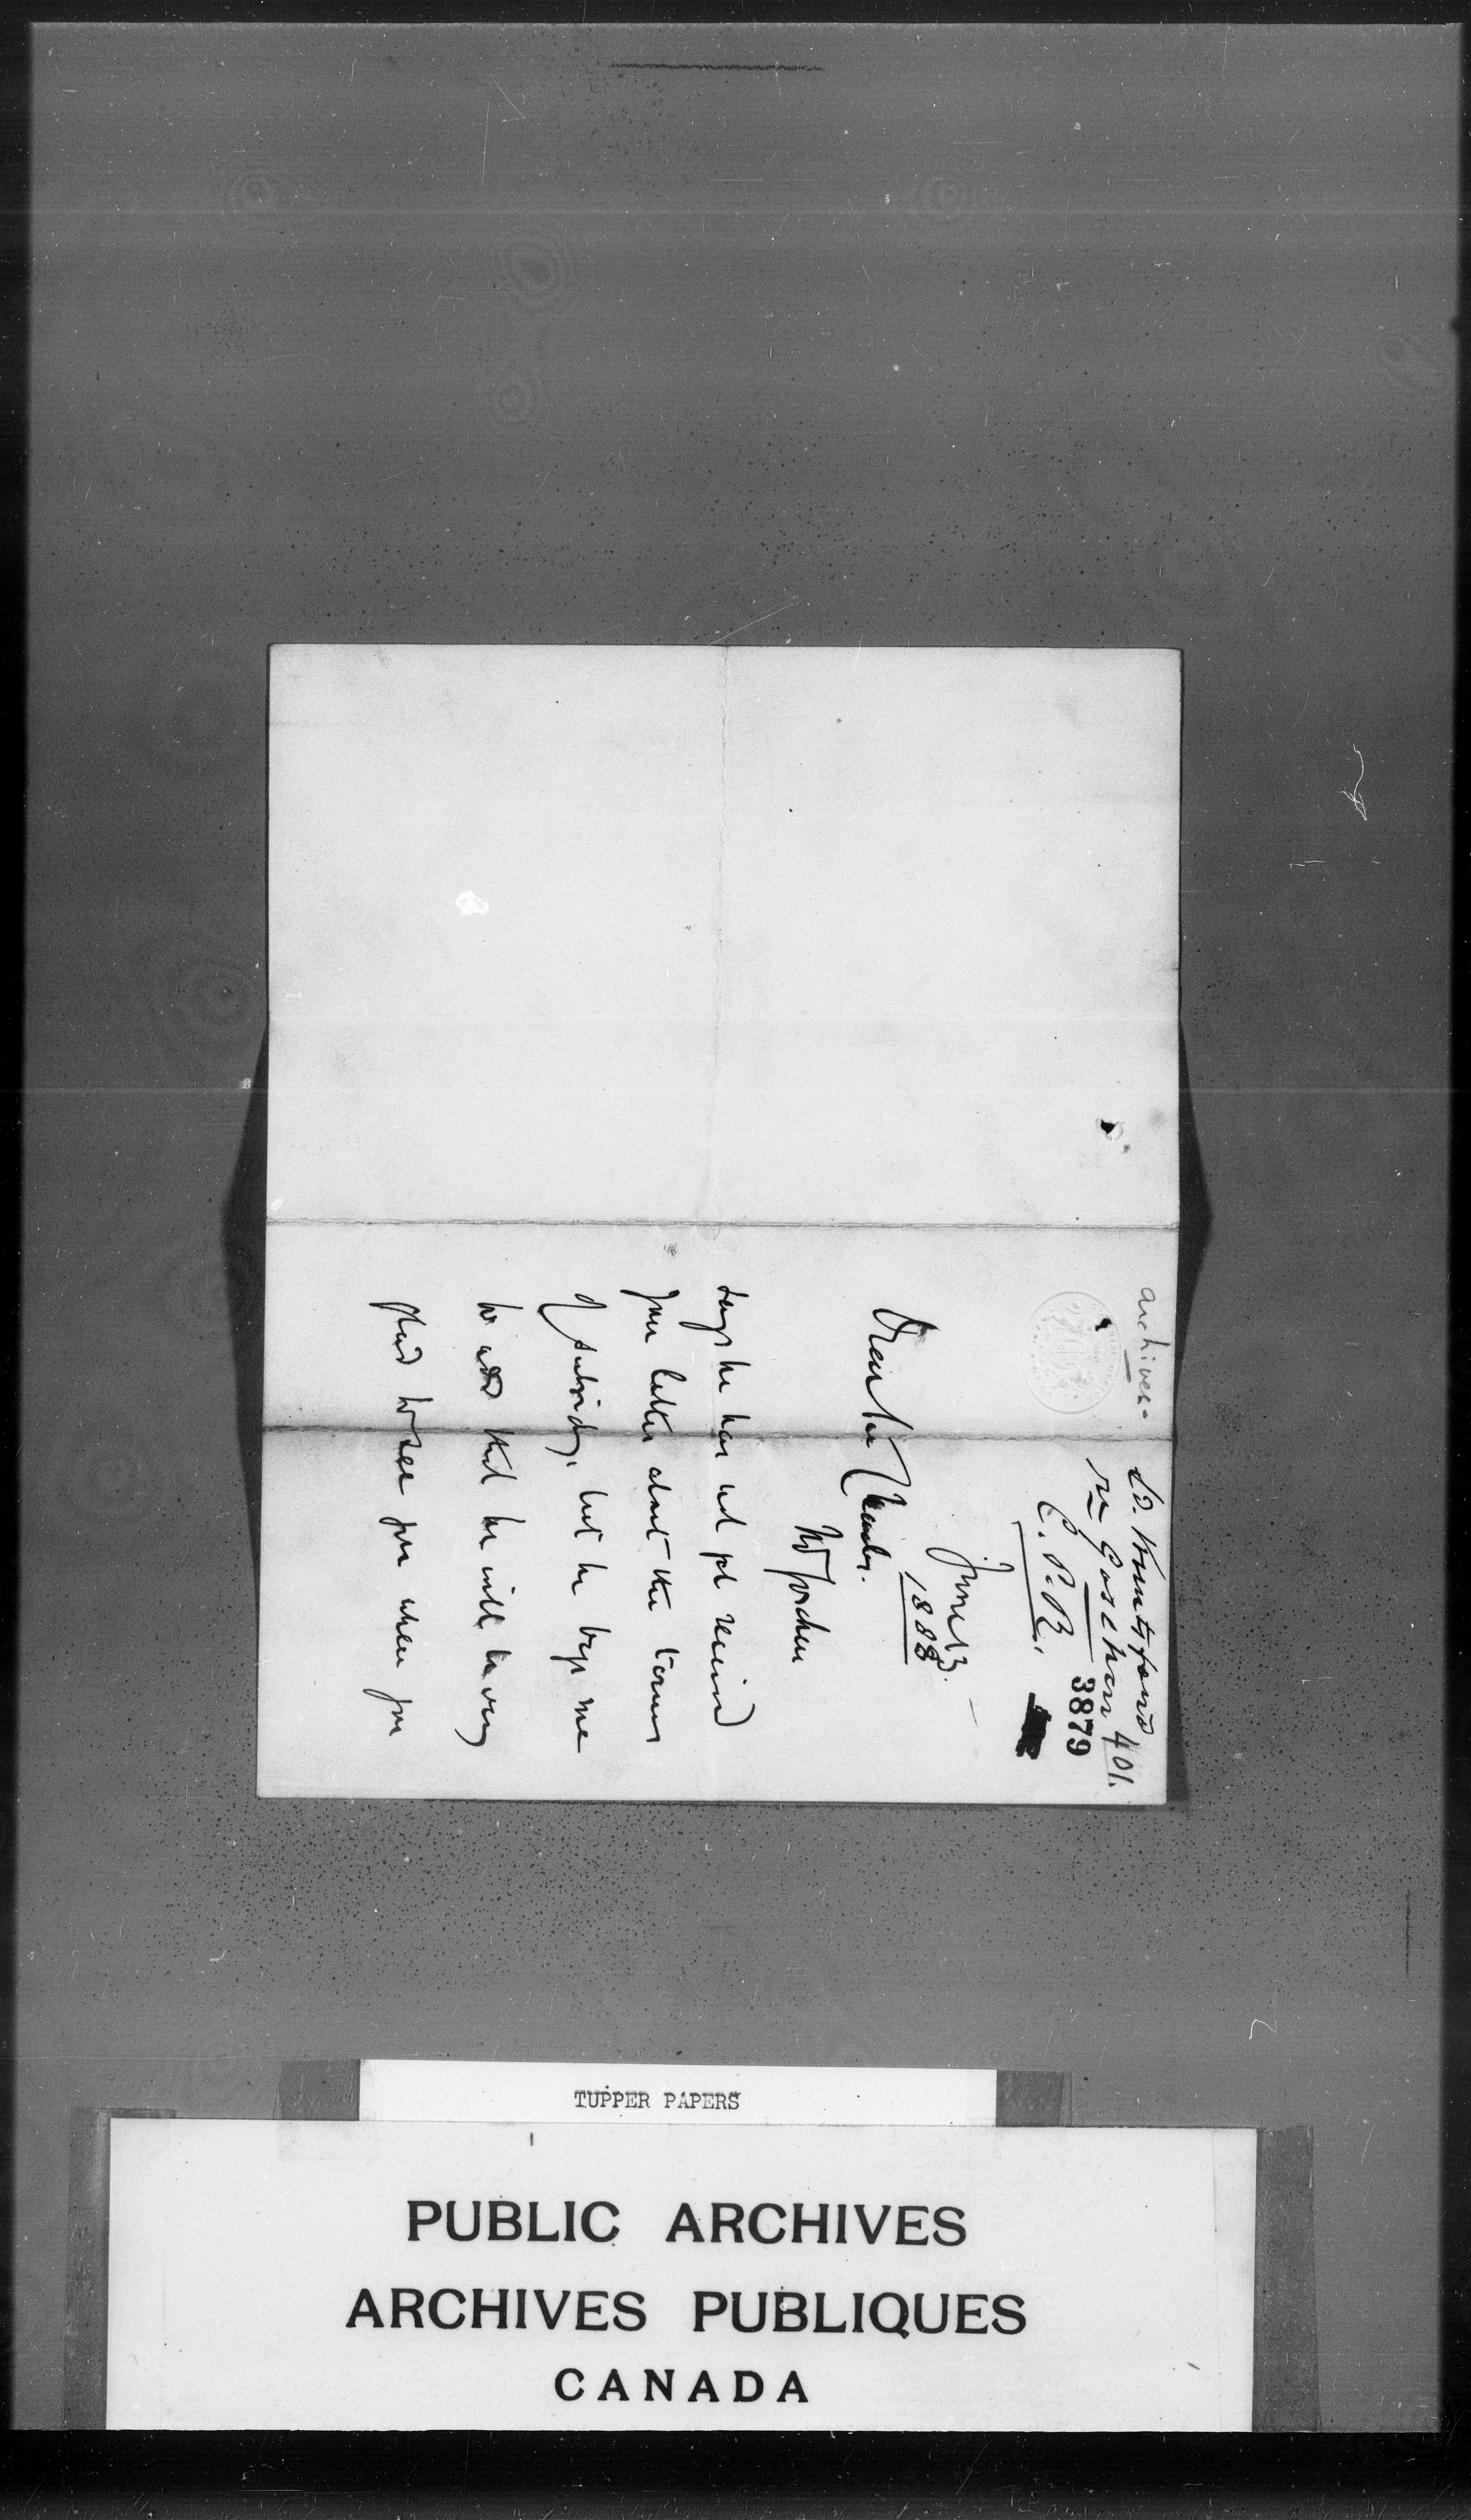 archives-
Ld. Mountford
re Goschen 401.
C.P.R.
3879
June 13.
1888
Dear Sir Charles.
Mr Goschen
says he has not yet received
your letter about the terms
of subsidy, but he begs me
to add that he will be very
glad to see you when you
TUPPER PAPERS
PUBLIC ARCHIVES
ARCHIVES PUBLIQUES
CANADA